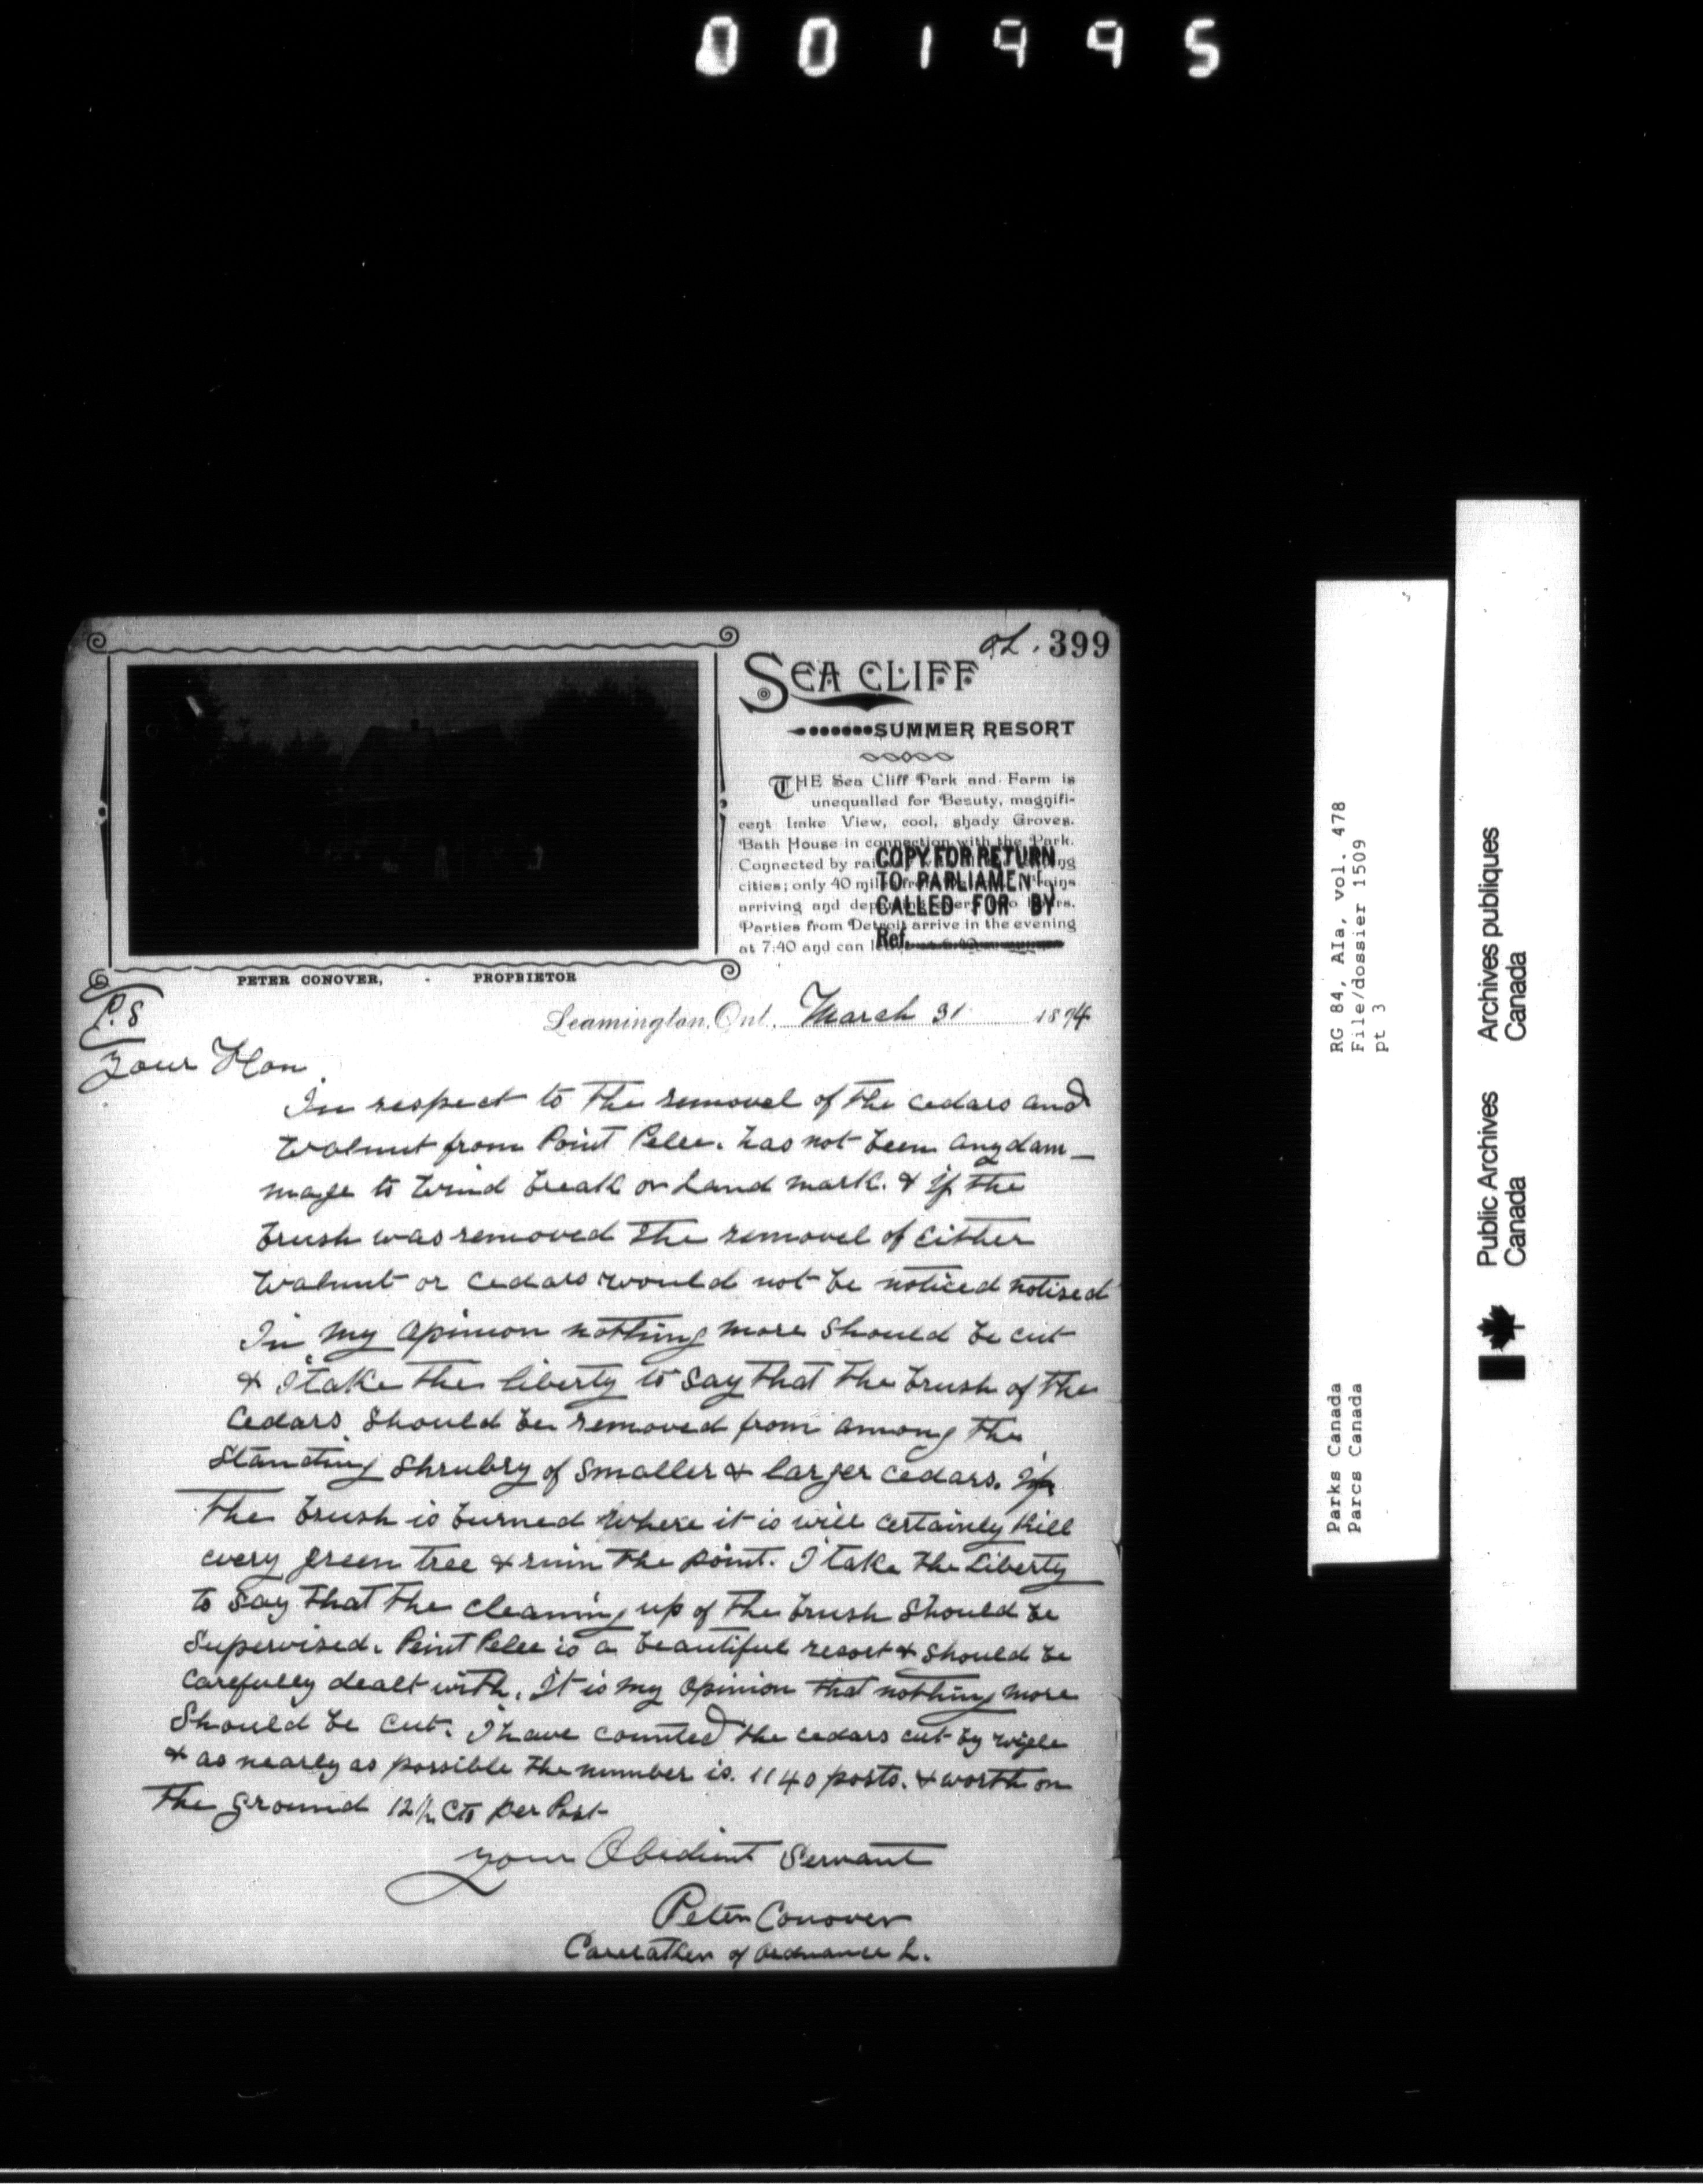 001995
OL. 399
SEA CLIFF
SUMMER RESORT
THE Sea Cliff Park and Farm is
unequalled for Beauty, magnifi-
cent Lake View, cool, shady Groves.
Bath House in connection with the Park.
Connected by
cities; only 40
arriving and
Parties from Detroit arrive in the evening
at 7:40 and can
COPY FOR RETURN
TO PARLIAMENT
CALLED FOR BY
Ref.
PETER CONOVER, - PROPRIETOR
P.S
Leamington, Ont., March 31 1894
Your Hon
In respect to the removel of the cedars and
Walnut from Point Pelee. has not been any dam-
mage to Wind break or Land mark. & if the
brush was removed the removel of Either
Walnut or cedars would not be noticed notised
In my Opinion nothing more should be cut
& I take the liberty to say that the brush of the
Cedars should be removed from among the
Standing Shrubry of Smaller & larger cedars. If
the brush is burned where it is will certainly kill
every green tree & ruin the point. I take the Liberty
to say that the cleaning up of the brush should be
Supervised. Point Pelee is a beautiful resort & should be
carefully dealt with. It is my Opinion that nothing more
Should be cut. I have counted the cedars cut by wigle
& as nearly as possible the number is. 1140 posts. & worth on
the ground 12½ cts per Post
your Obedient Servant
Peter Conover
of Ordnance L.
Parks Canada RG 84, A1a, vol. 478
Parcs Canada File/dossier 1509
pt 3
Public Archives Archives publiques
Canada Canada